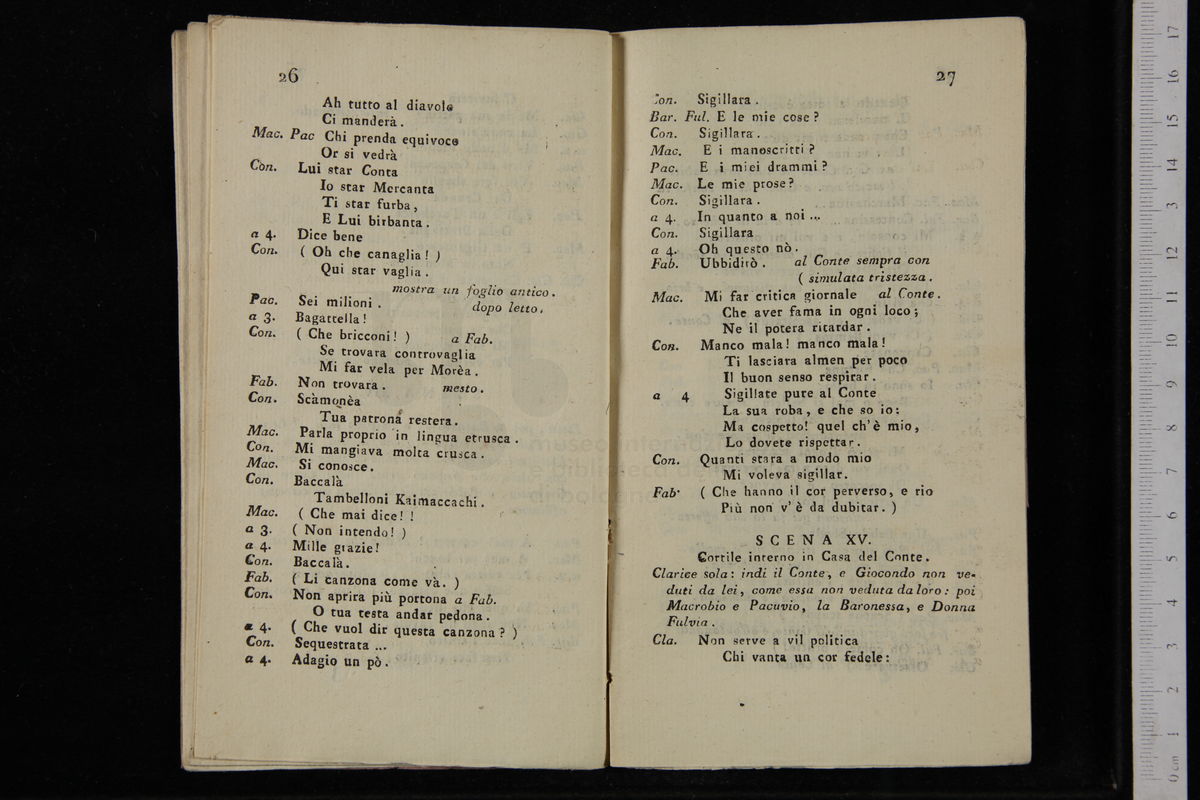 26
Ah tutto al diavolo
Ci manderà.
Mac. Pac Chi prenda equivoco
Or si vedrà
Con. Lui star Conta
Io star Mercanta
Ti star furba,
E Lui birbanta.
a 4. Dice bene
Con. ( Oh che canaglia! )
Qui star vaglia.
mostra un foglio antico.
Pac. Sei milioni. dopo letto.
a 3. Bagattella!
Con. ( Che bricconi! ) a Fab.
Se trovara controvaglia
Mi far vela per Morèa.
Fab. Non trovara. mesto.
Con. Scàmonèa
Tua patronà restera.
Mac. Parla proprio in lingua etrusca.
Con. Mi mangiava molta crusca.
Mac. Si conosce.
Con. Baccalà
Tambelloni Kaimaccachi.
Mac. ( Che mai dice! !
a 3. ( Non intendo! )
a 4. Mille grazie!
Con. Baccalà.
Fab. ( Li canzona come và. )
Con. Non aprira più portona a Fab.
O tua testa andar pedona.
a 4. ( Che vuol dir questa canzona? )
Con. Sequestrata ...
a 4. Adagio un pò.
27
Con. Sigillara.
Bar. Ful. E le mie cose?
Con. Sigillara.
Mac. E i manoscritti?
Pac. E i miei drammi?
Mac. Le mie prose?
Con. Sigillara.
a 4. In quanto a noi ...
Con. Sigillara
a 4. Oh questo nò.
Fab. Ubbidirò. al Conte sempre con
( simulata tristezza.
Mac. Mi far critica giornale al Conte.
Che aver fama in ogni loco;
Ne il potera ritardar.
Con. Manco mala! manco mala!
Ti lasciara almen per poco
Il buon senso respirar.
a 4 Sigillate pure al Conte
La sua roba, e che so io:
Ma cospetto! quel ch'è mio,
Lo dovete rispettar.
Con. Quanti stara a modo mio
Mi voleva sigillar.
Fab. ( Che hanno il cor perverso, e rio
Più non v'è da dubitar. )
SCENA XV.
Cortile interno in Casa del Conte.
Clarice sola: indi il Conte, e Giocondo non ve-
duti da lei, come essa non veduta da loro: poi
Macrobio e Pacuvio, la Baronessa, e Donna
Fulvia.
Cla. Non serve a vil politica
Chi vanta un cor fedele: